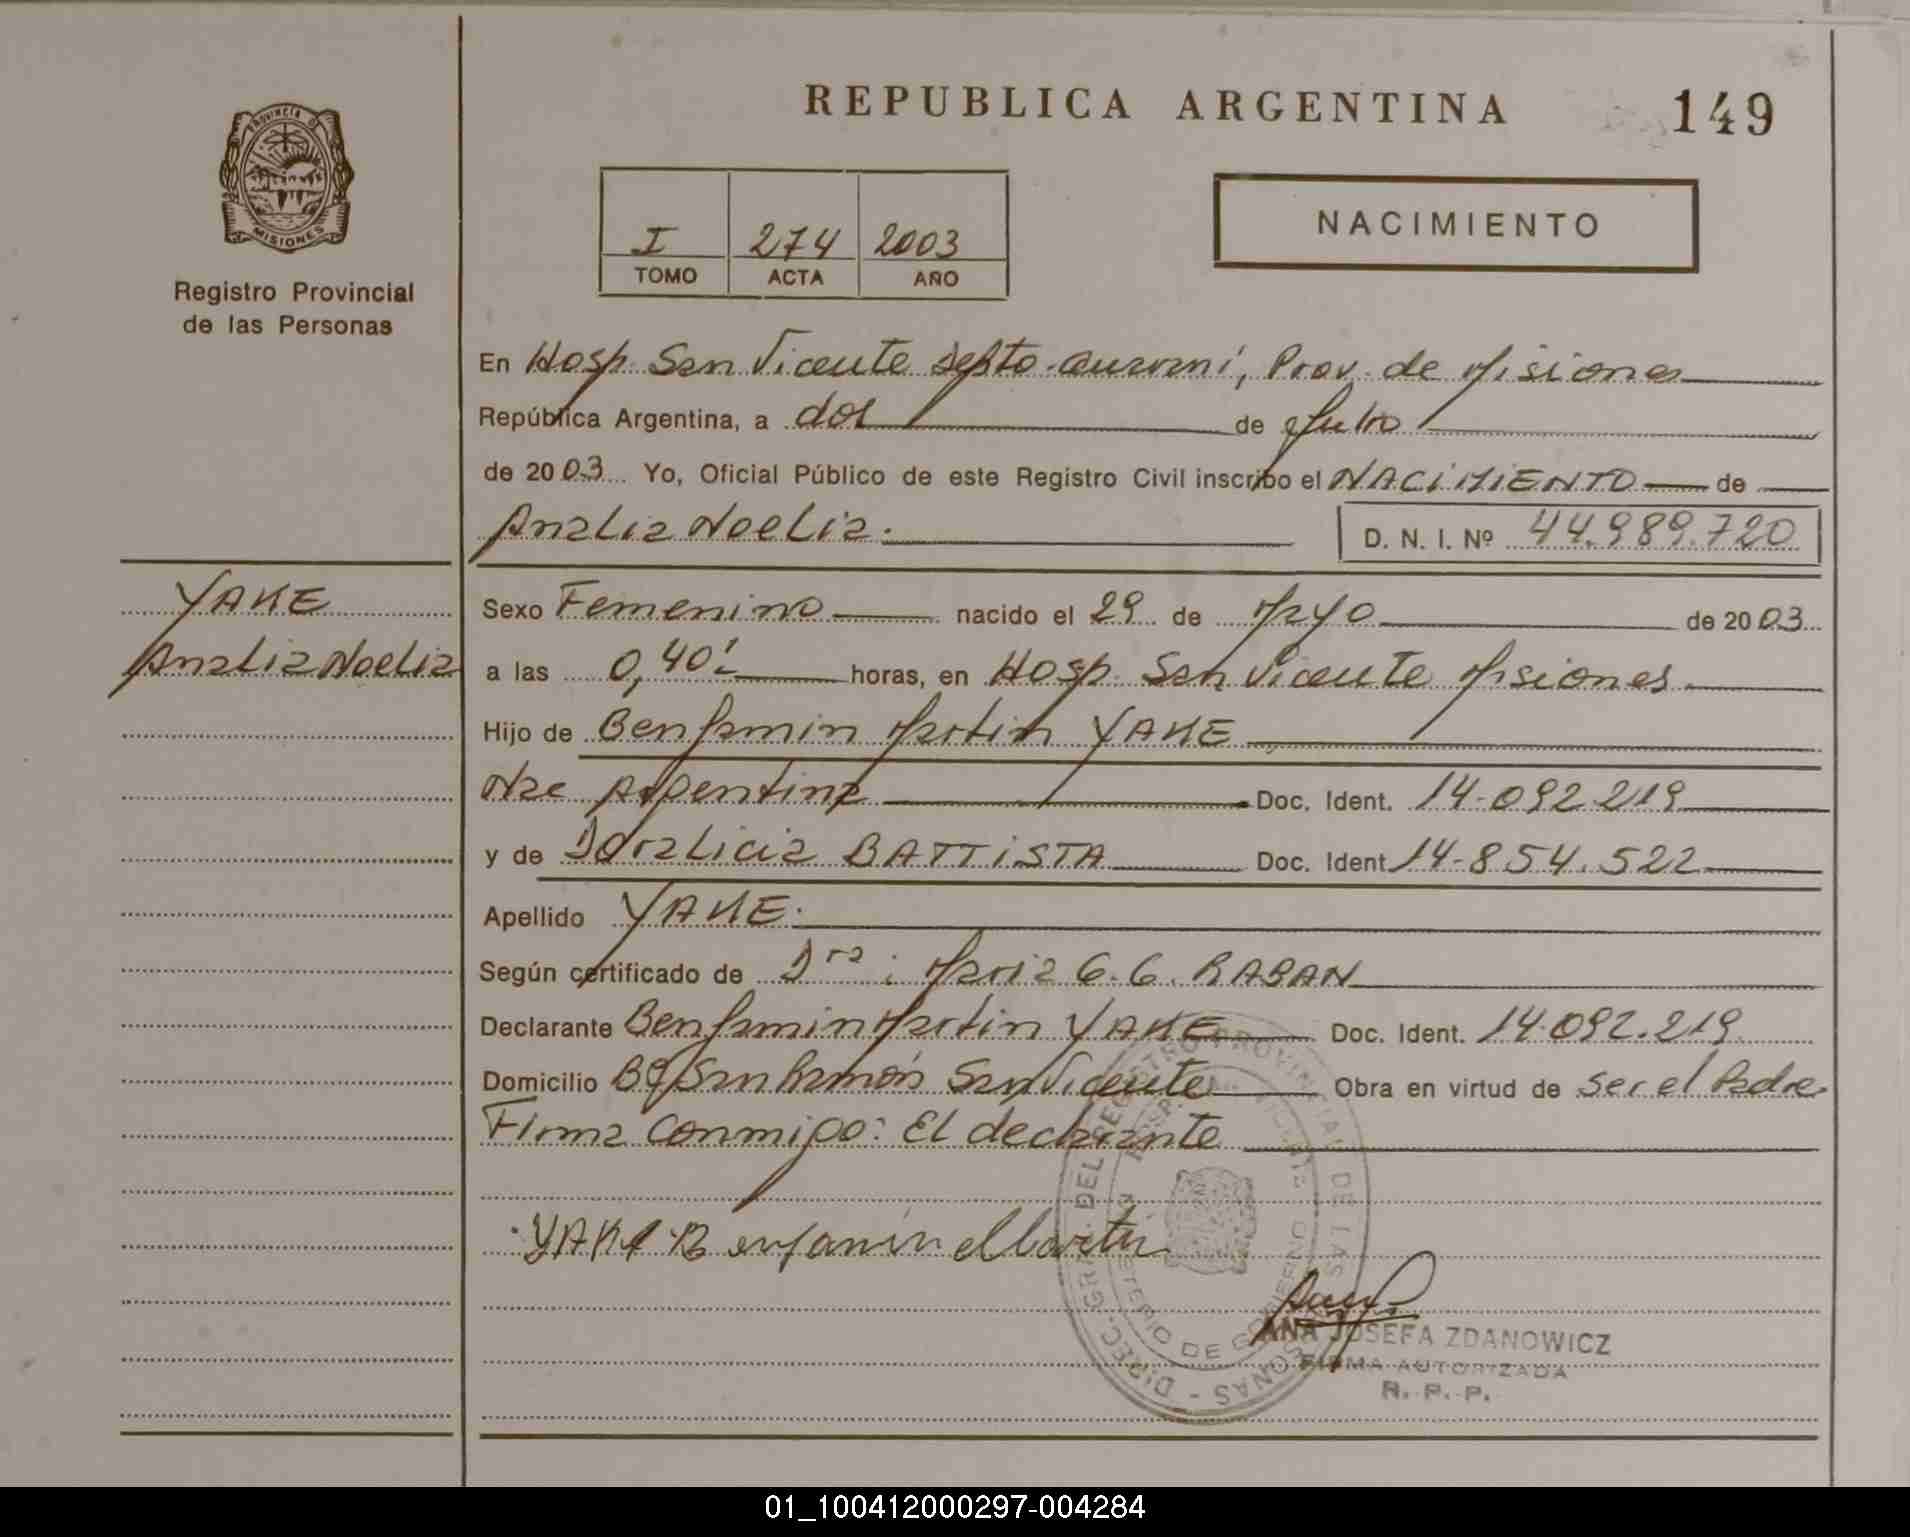 REPUBLICA ARGENTINA
149
PROVINCIA D
MISIONES
Registro Provincial
de las Personas
I 274 2003
TOMO ACTA AÑO
NACIMIENTO
En Hosp. San Vicente Depto. Guaraní, Prov. de Misiones
República Argentina, a dos de Julio
de 2003 Yo, Oficial Público de este Registro Civil inscribo el NACIMIENTO de
Analia Noelia.
D. N. I. Nº 44.989.720
YAKE
Analia Noelia
Sexo Femenino nacido el 29 de Mayo de 2003
a las 0,40' horas, en Hosp. San Vicente Misiones
Hijo de Benjamin Martin YAKE
Nac Argentina Doc. Ident. 14-092.219
y de Doralicia BATTISTA Doc. Ident 14-854.522
Apellido YAKE.
Según certificado de Dra: Maria G. G. RABAN
Declarante Benjamin Martin YAKE Doc. Ident. 14.092.219.
Domicilio Bº San Ramón San Vicente Obra en virtud de ser el Padre
Firma Conmigo: El declarante
YAKE Benjamin Martin
DIREC. GRAL. DEL REGISTRO PROVINCIAL DE LAS PERSONAS
MINISTERIO DE GOBIERNO
ANA JOSEFA ZDANOWICZ
FIRMA AUTORIZADA
R. P. P.
01_100412000297-004284